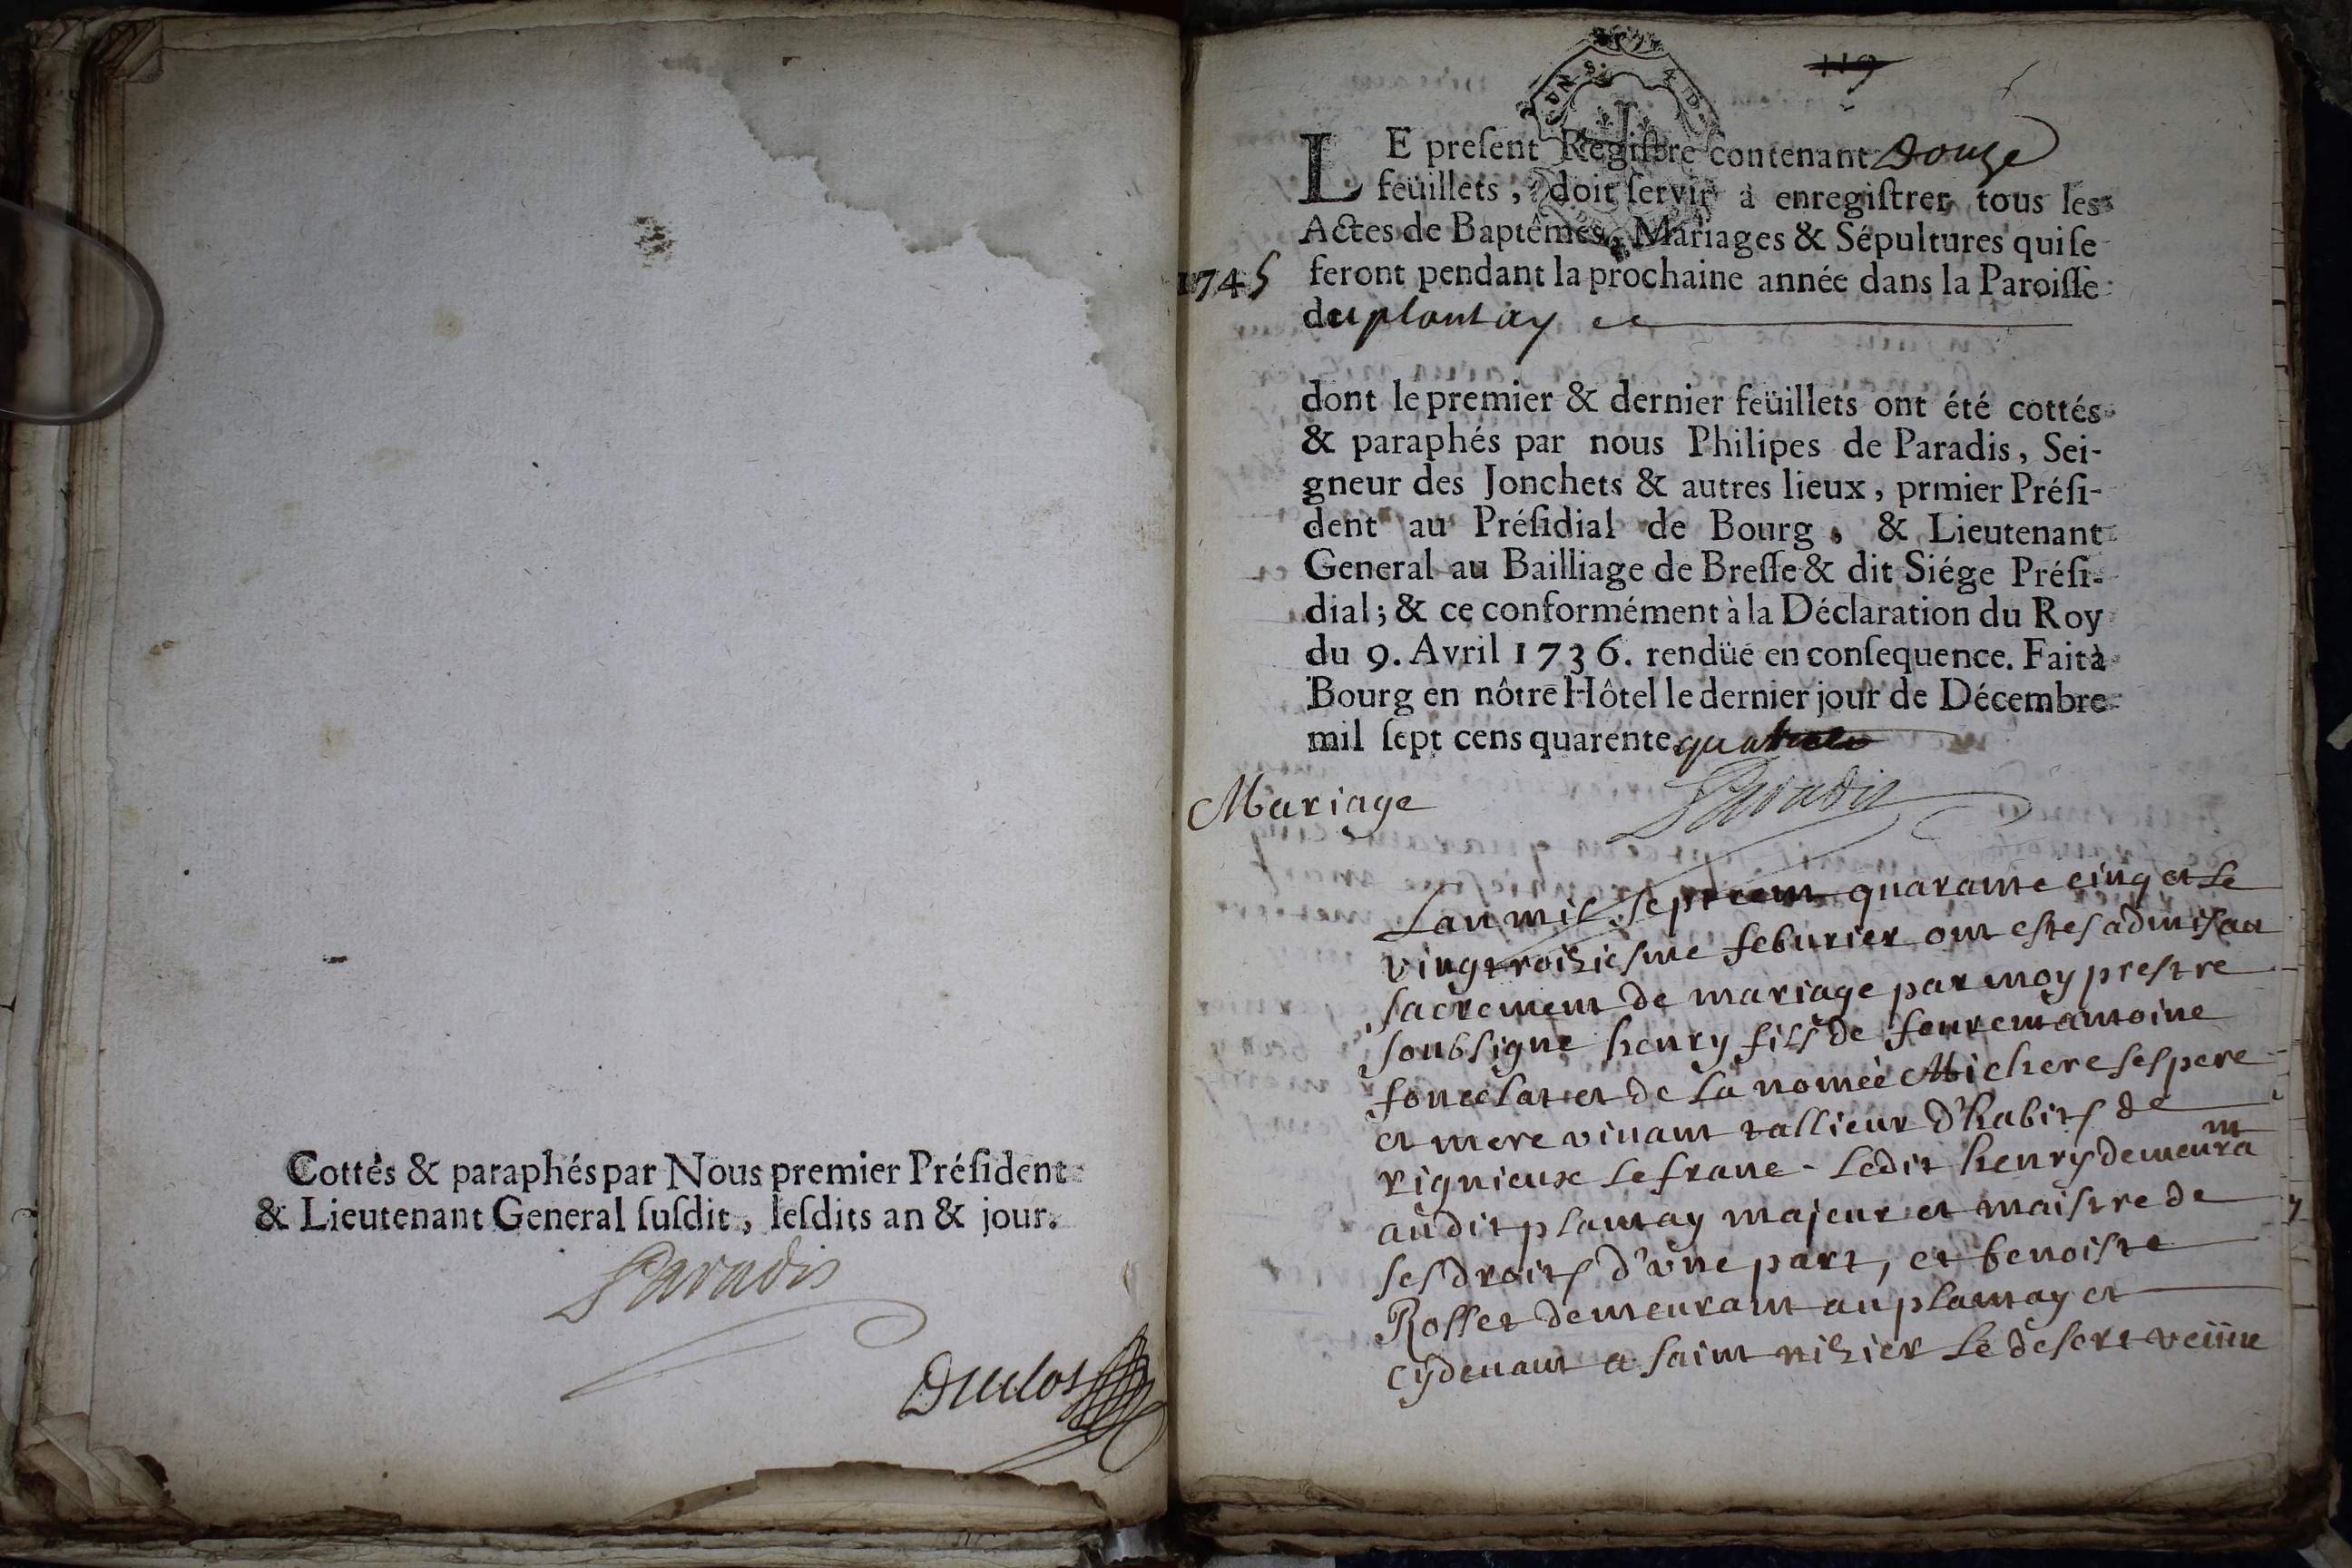 Cottés & paraphés par Nous premier Présid̶ent
& Lieutenant General ſuſdit, leſdits an & jour.
Paradis
Duclos
119
LE preſent Regiſtre contenant Douze
feüillets, doit ſervir à enregiſtrer tous les
Actes de Baptêmes, Mariages & Sépultures qui ſe
1745 feront pendant la prochaine année dans la Paroiſſe
du plantay
dont le premier & dernier feüillets ont été cottés
& paraphés par nous Philipes de Paradis, Sei-
gneur des Jonchets & autres lieux, prmier Préſi-
dent au Préſidial de Bourg, & Lieutenant
General au Bailliage de Breſſe & dit Siége Préſi-
dial; & ce conformément à la Déclaration du Roy
du 9. Avril 1736. rendüe en conſequence. Fait à
Bourg en nôtre Hôtel le dernier jour de Décembre
mil ſept cens quarente quatre
Paradis
Mariage
Lan mil sept cent quarante cinq et le
vingt troisiesme feburier ont estes admis au
sacrement de mariage par moy prestre
soubsigne henry fils de feu antoine
et de la nomée Michere ses pere
et mere vivant tallieur d'habits de
rignieux le franc - ledit henry demeurant
audit plantay majeur et maistre de
ses droits d'une part, et benoiste
Rollet demeurant au plantay et
cy devant a saint nizier le desert veuue